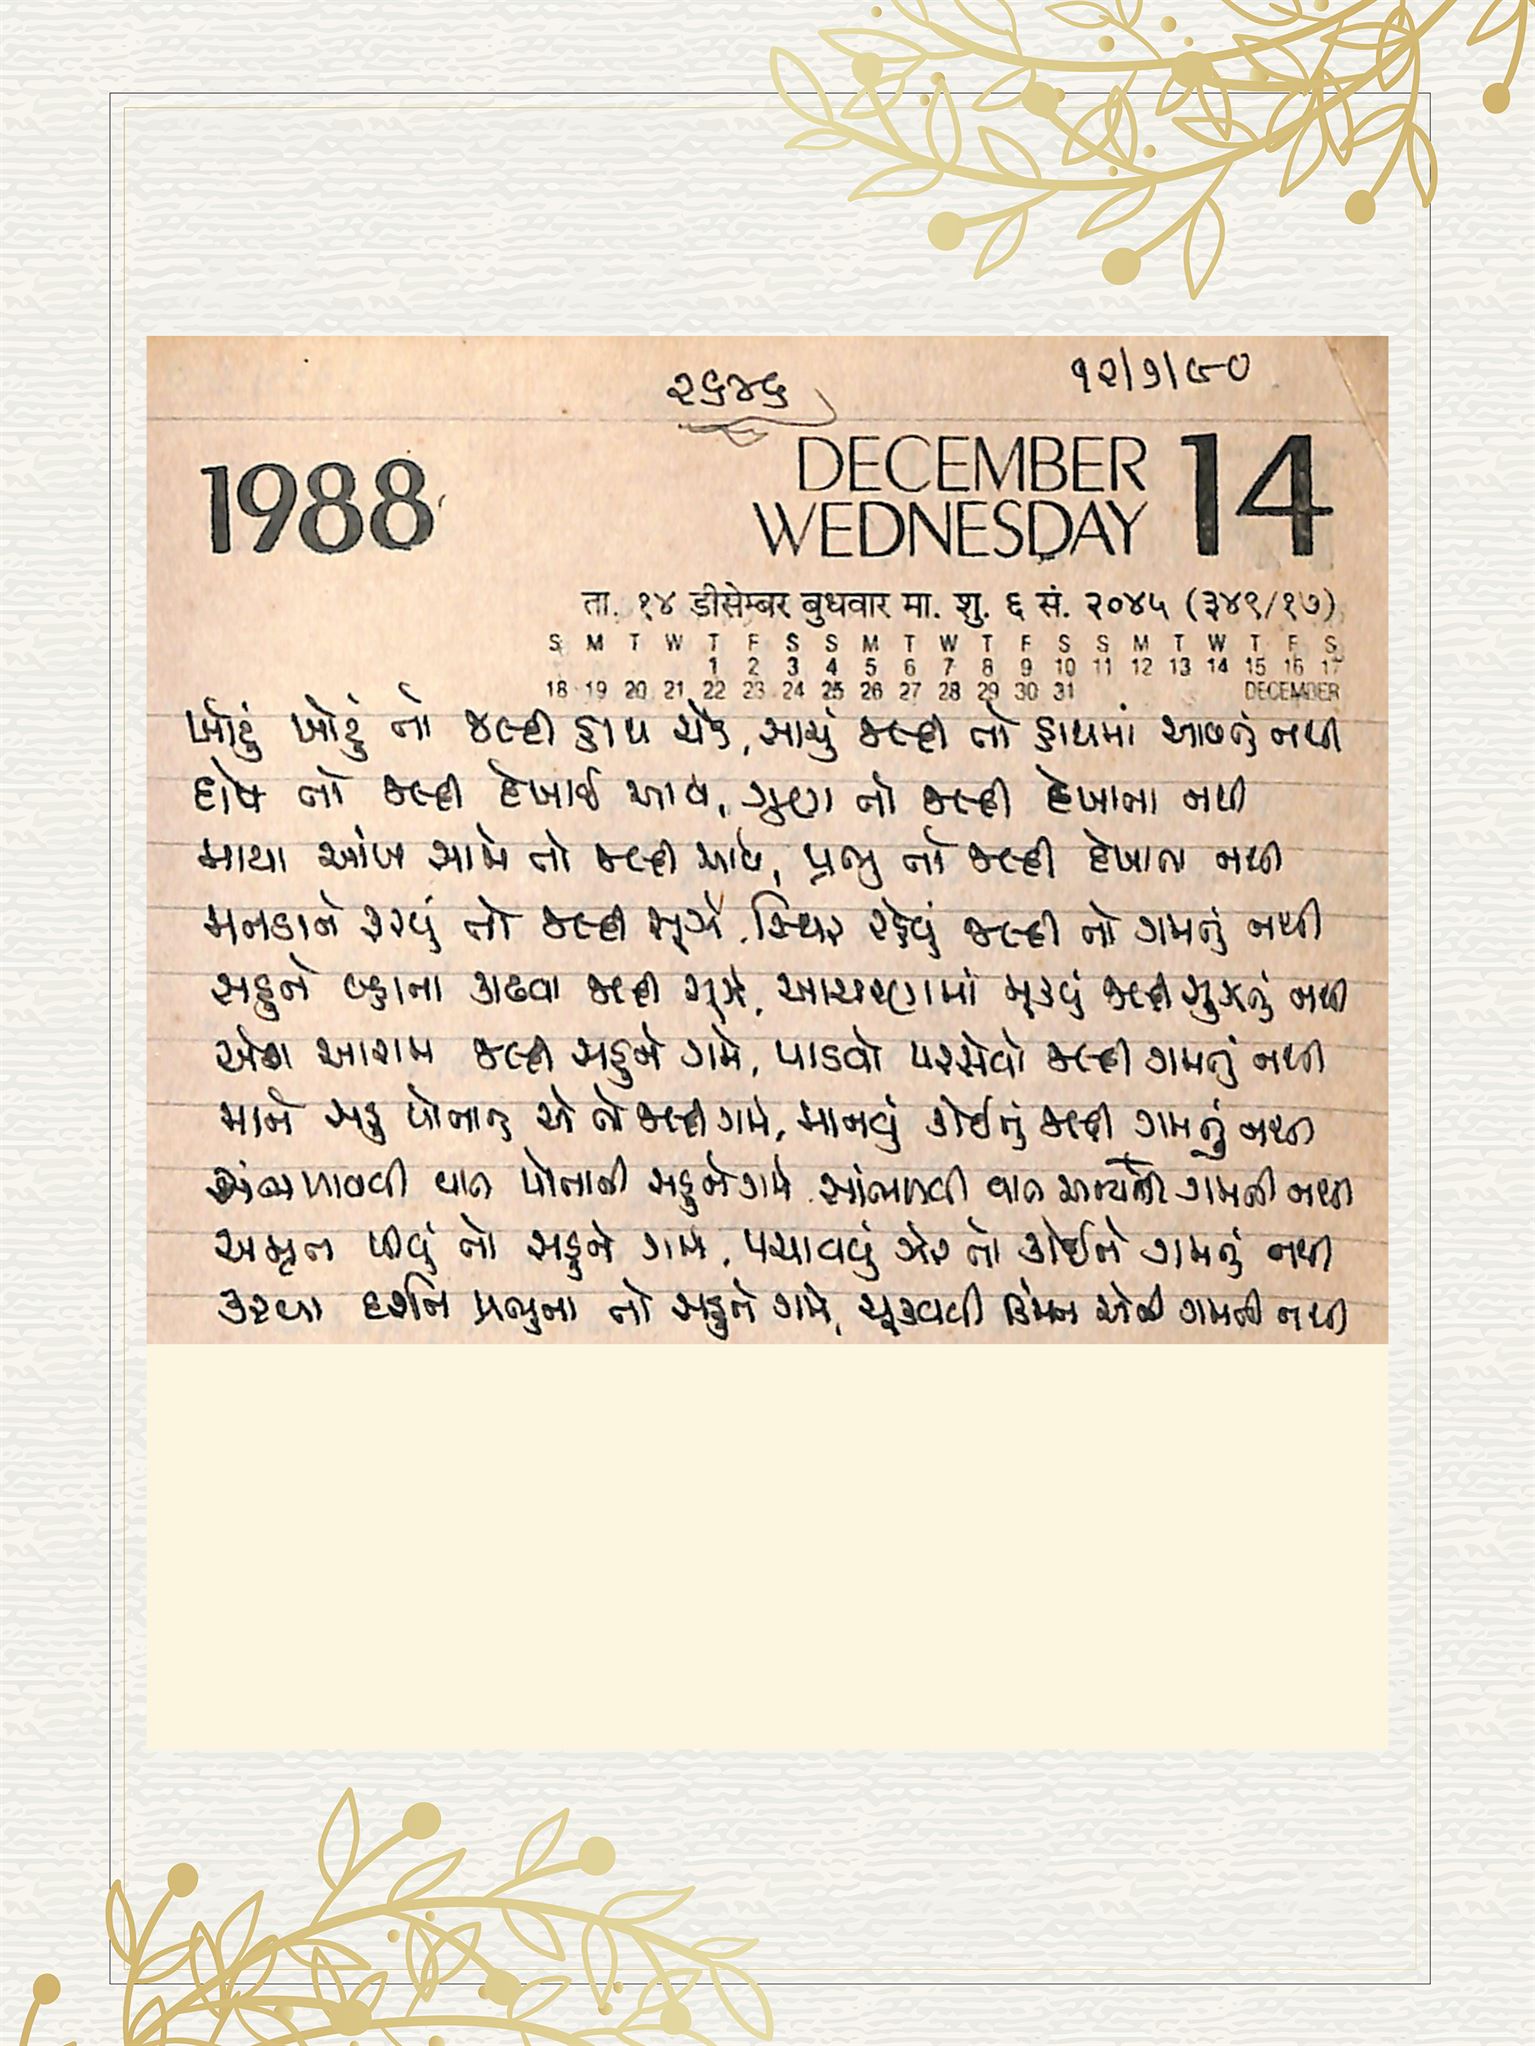 ૨૬૪૬
૧૨/૭/૯૦
1988
DECEMBER 14
WEDNESDAY
ता. १४ डीसेम्बर बुधवार मा. शु. ६ सं. २०४५ (३४९/१७)
S M T W T F S S M T W T F S S M T W T F S
1 2 3 4 5 6 7 8 9 10 11 12 13 14 15 16 17
18 19 20 21 22 23 24 25 26 27 28 29 30 31 DECEMBER
ખોટું ખોટું તો જલ્દી હાથ ચડે, સાચું જલ્દી તો હાથમાં આવતું નથી
દોષ તો જલ્દી દેખાઈ આવે, ગુણ તો જલ્દી દેખાતા નથી
માયા આંખ સામે તો જલ્દી આવે, પ્રભુ તો જલ્દી દેખાતા નથી
મનડાને ફરવું તો જલ્દી સૂઝે, સ્થિર રહેવું જલ્દી તો ગમતું નથી
સહુને બહાના કાઢવા જલ્દી સૂઝે, આચરણમાં મૂકવું જલ્દી સુઝતું નથી
એશ આરામ જલ્દી સહુને ગમે, પાડવો પરસેવો જલ્દી ગમતું નથી
માને સહુ પોતાનું એ તો જલ્દી ગમે, માનવું કોઈનું જલ્દી ગમતું નથી
સંભળાવવી વાત પોતાની સહુને ગમે સાંભળવી વાત અન્યની ગમતી નથી
અમૃત પીવું તો સહુને ગમે, પચાવવું ઝેર તો કોઈને ગમતું નથી
કરવા દર્શન પ્રભુના તો સહુને ગમે, ચૂકવવી કિંમત એની ગમતી નથી